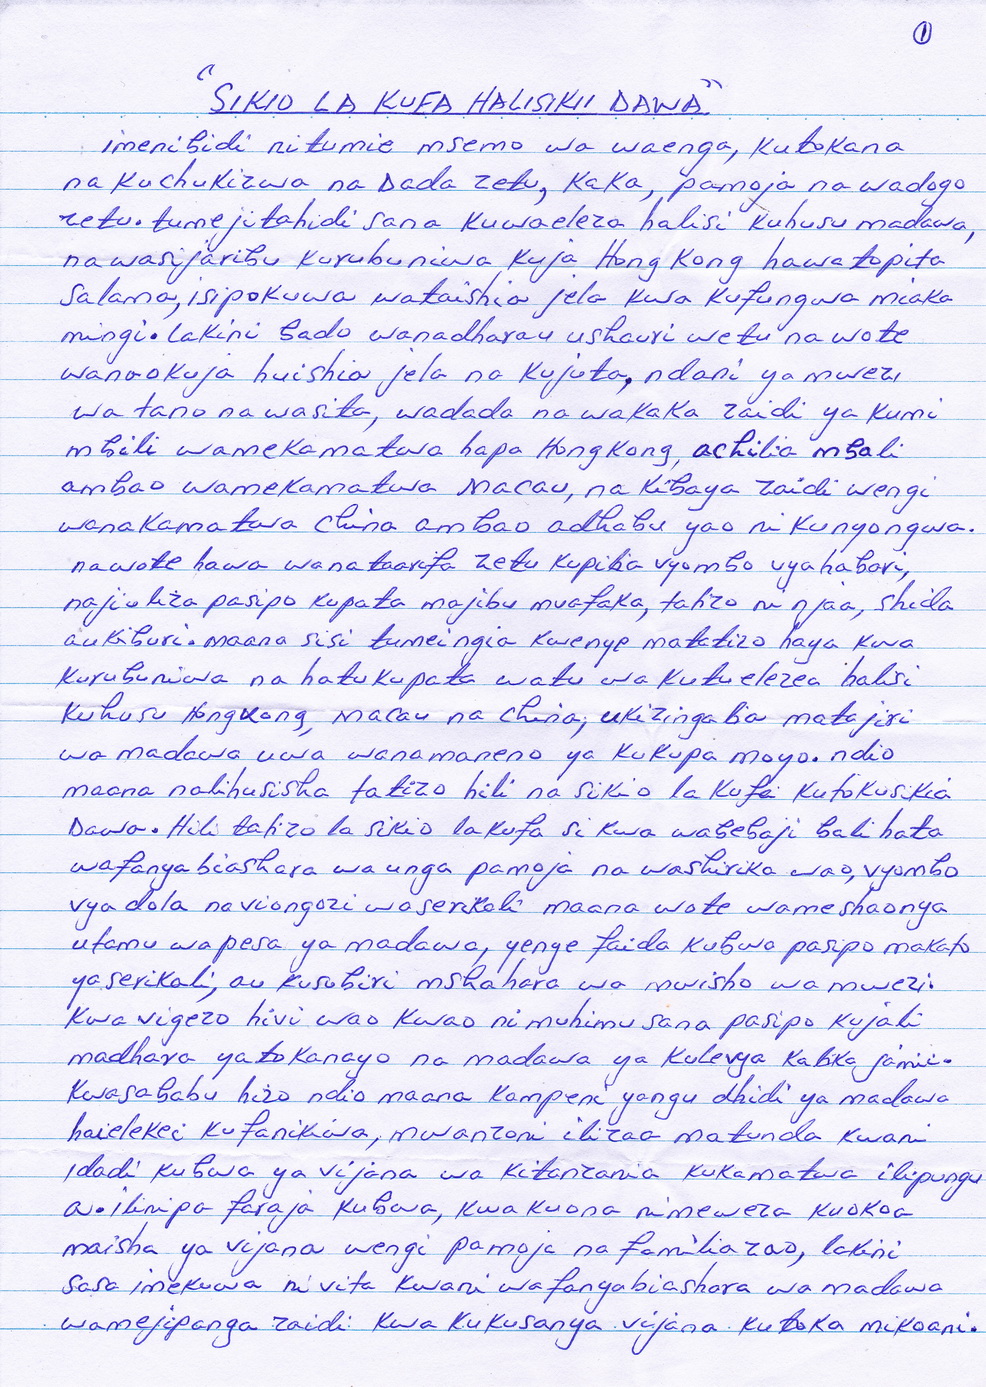 ①
"SIKIO LA KUFA HALISIKII DAWA"
imenibidi nitumie msemo wa waenga, kutokana
na kuchukizwa na Dada zetu, kaka, pamoja na wadogo
zetu. tumejitahidi sana kuwaeleza halisi kuhusu madawa,
na wasijaribu kurubuniwa kuja Hong Kong hawatopita
salama, isipokuwa wataishia jela kwa kufungwa miaka
mingi. lakini bado wanadharau ushauri wetu na wote
wanaokuja huishia jela na kujuta, ndani ya mwezi
wa tano na wasita, wadada na wakaka zaidi ya kumi
mbili wamekamatwa hapa Hong Kong, achilia mbali
ambao wamekamatwa Macau, na kibaya zaidi wengi
wanakamatwa China ambao adhabu yao ni kunyongwa.
na wote hawa wana taarifa zetu kupitia vyombo vya habari,
najiuliza pasipo kupata majibu muafaka, tatizo ni njaa, shida
au kiburi. maana sisi tumeingia kwenye matatizo haya kwa
kurubuniwa na hatukupata watu wa kutuelezea halisi
kuhusu Hong Kong, Macau na China, ukizingatia matajiri
wa madawa uwa wanamaneno ya kukupa moyo. ndio
maana nalihusisha tatizo hili na sikio la kufa kutokusikia
Dawa. Hili tatizo la sikio la kufa si kwa wabebaji bali hata
wafanyabiashara wa unga pamoja na washirika wao, vyombo
vya dola na viongozi wa serikali maana wote wameshaonga
utamu wa pesa ya madawa, yenye faida kubwa pasipo makato
ya serikali, au kusubiri mshahara wa mwisho wa mwezi.
kwa vigezo hivi wao kwao ni muhimu sana pasipo kujali
madhara yatokanayo na madawa ya kulevya katika jamii.
kwasababu hizo ndio maana kampeni yangu dhidi ya madawa
haielekei kufanikiwa, mwanzoni ilizaa matunda kwani
idadi kubwa ya vijana wa kitanzania kukamatwa ilipungu
a. ilinipa faraja kubwa, kwa kuona nimeweza kuokoa
maisha ya vijana wengi pamoja na familia zao, lakini
sasa imekuwa ni vita kwani wafanyabiashara wa madawa
wamejipanga zaidi kwa kukusanya vijana kutoka mikoani.